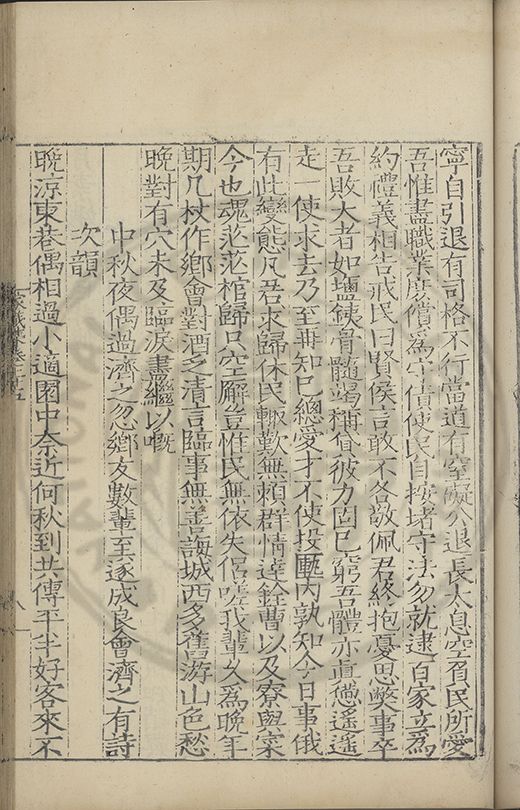 寧自引退有司格不行當道有窒礙公退長太息空貧民所愛
吾惟盡職業虜償為守債使民自按堵守法勿就逮百家立為
約禮義相告戒民曰賢侯言敢不各敬佩君終抱憂思獘事卒
吾敗大者如塩鉄骨髓竭稱貸彼力固已窮吾體亦直憊遙遙
走一使求去乃至再知己總愛才不使投匭內孰知今日事俄
有此變態凡君求歸休民輙歎無賴群情達銓曹以及寮與寀
今也魂茫茫棺歸只空廨豈惟民無依失侶嗟我輩久為晚年
期几杖作鄉會對酒之清言臨事無善誨城西多舊游山色愁
晚對有穴未及臨淚盡繼以嘅
中秋夜偶過濟之忽鄉友數輩至遂成良會濟之有詩
次韻
晚涼東巷偶相過小適園中奈近何秋到共傳平半好客來不